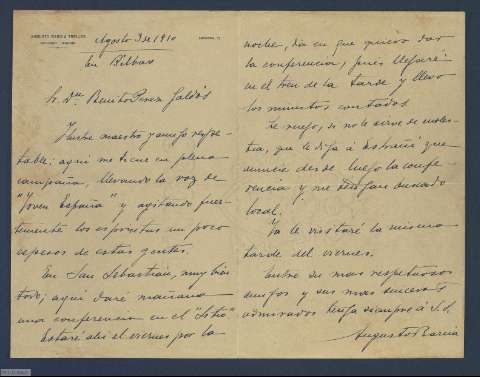 AUGUSTO BARCIA TRELLES
Agosto 3 de 1910
En Bilbao
Sr. Dn. Benito Perez Galdós
Ilustre maestro y amigo respe-
table: aqui me tiene en plena
campaña, llevando la voz de
"Joven España" y agitando fuer-
temente los espiritus un poco
espesos de estas gentes.
En San Sebastian, muy bien
todo; aqui daré mañana
una conferencia en el "Sitio"
Estaré ahi el viernes por la
noche, dia en que quiero dar
la conferencia, pues llegaré
en el tren de la tarde y llevo
los minutos contados
Le ruego, si no le sirve de moles-
tia, que le diga á Estrañi que
anuncie desde luego la confe-
rencia y me tengan buscado
local.
Ya le visitaré la misma
tarde del viernes.
Entre sus mas respetuosos
amigos y sus mas sinceros
admiradores tenga siempre á S. S.
Augusto Barcia